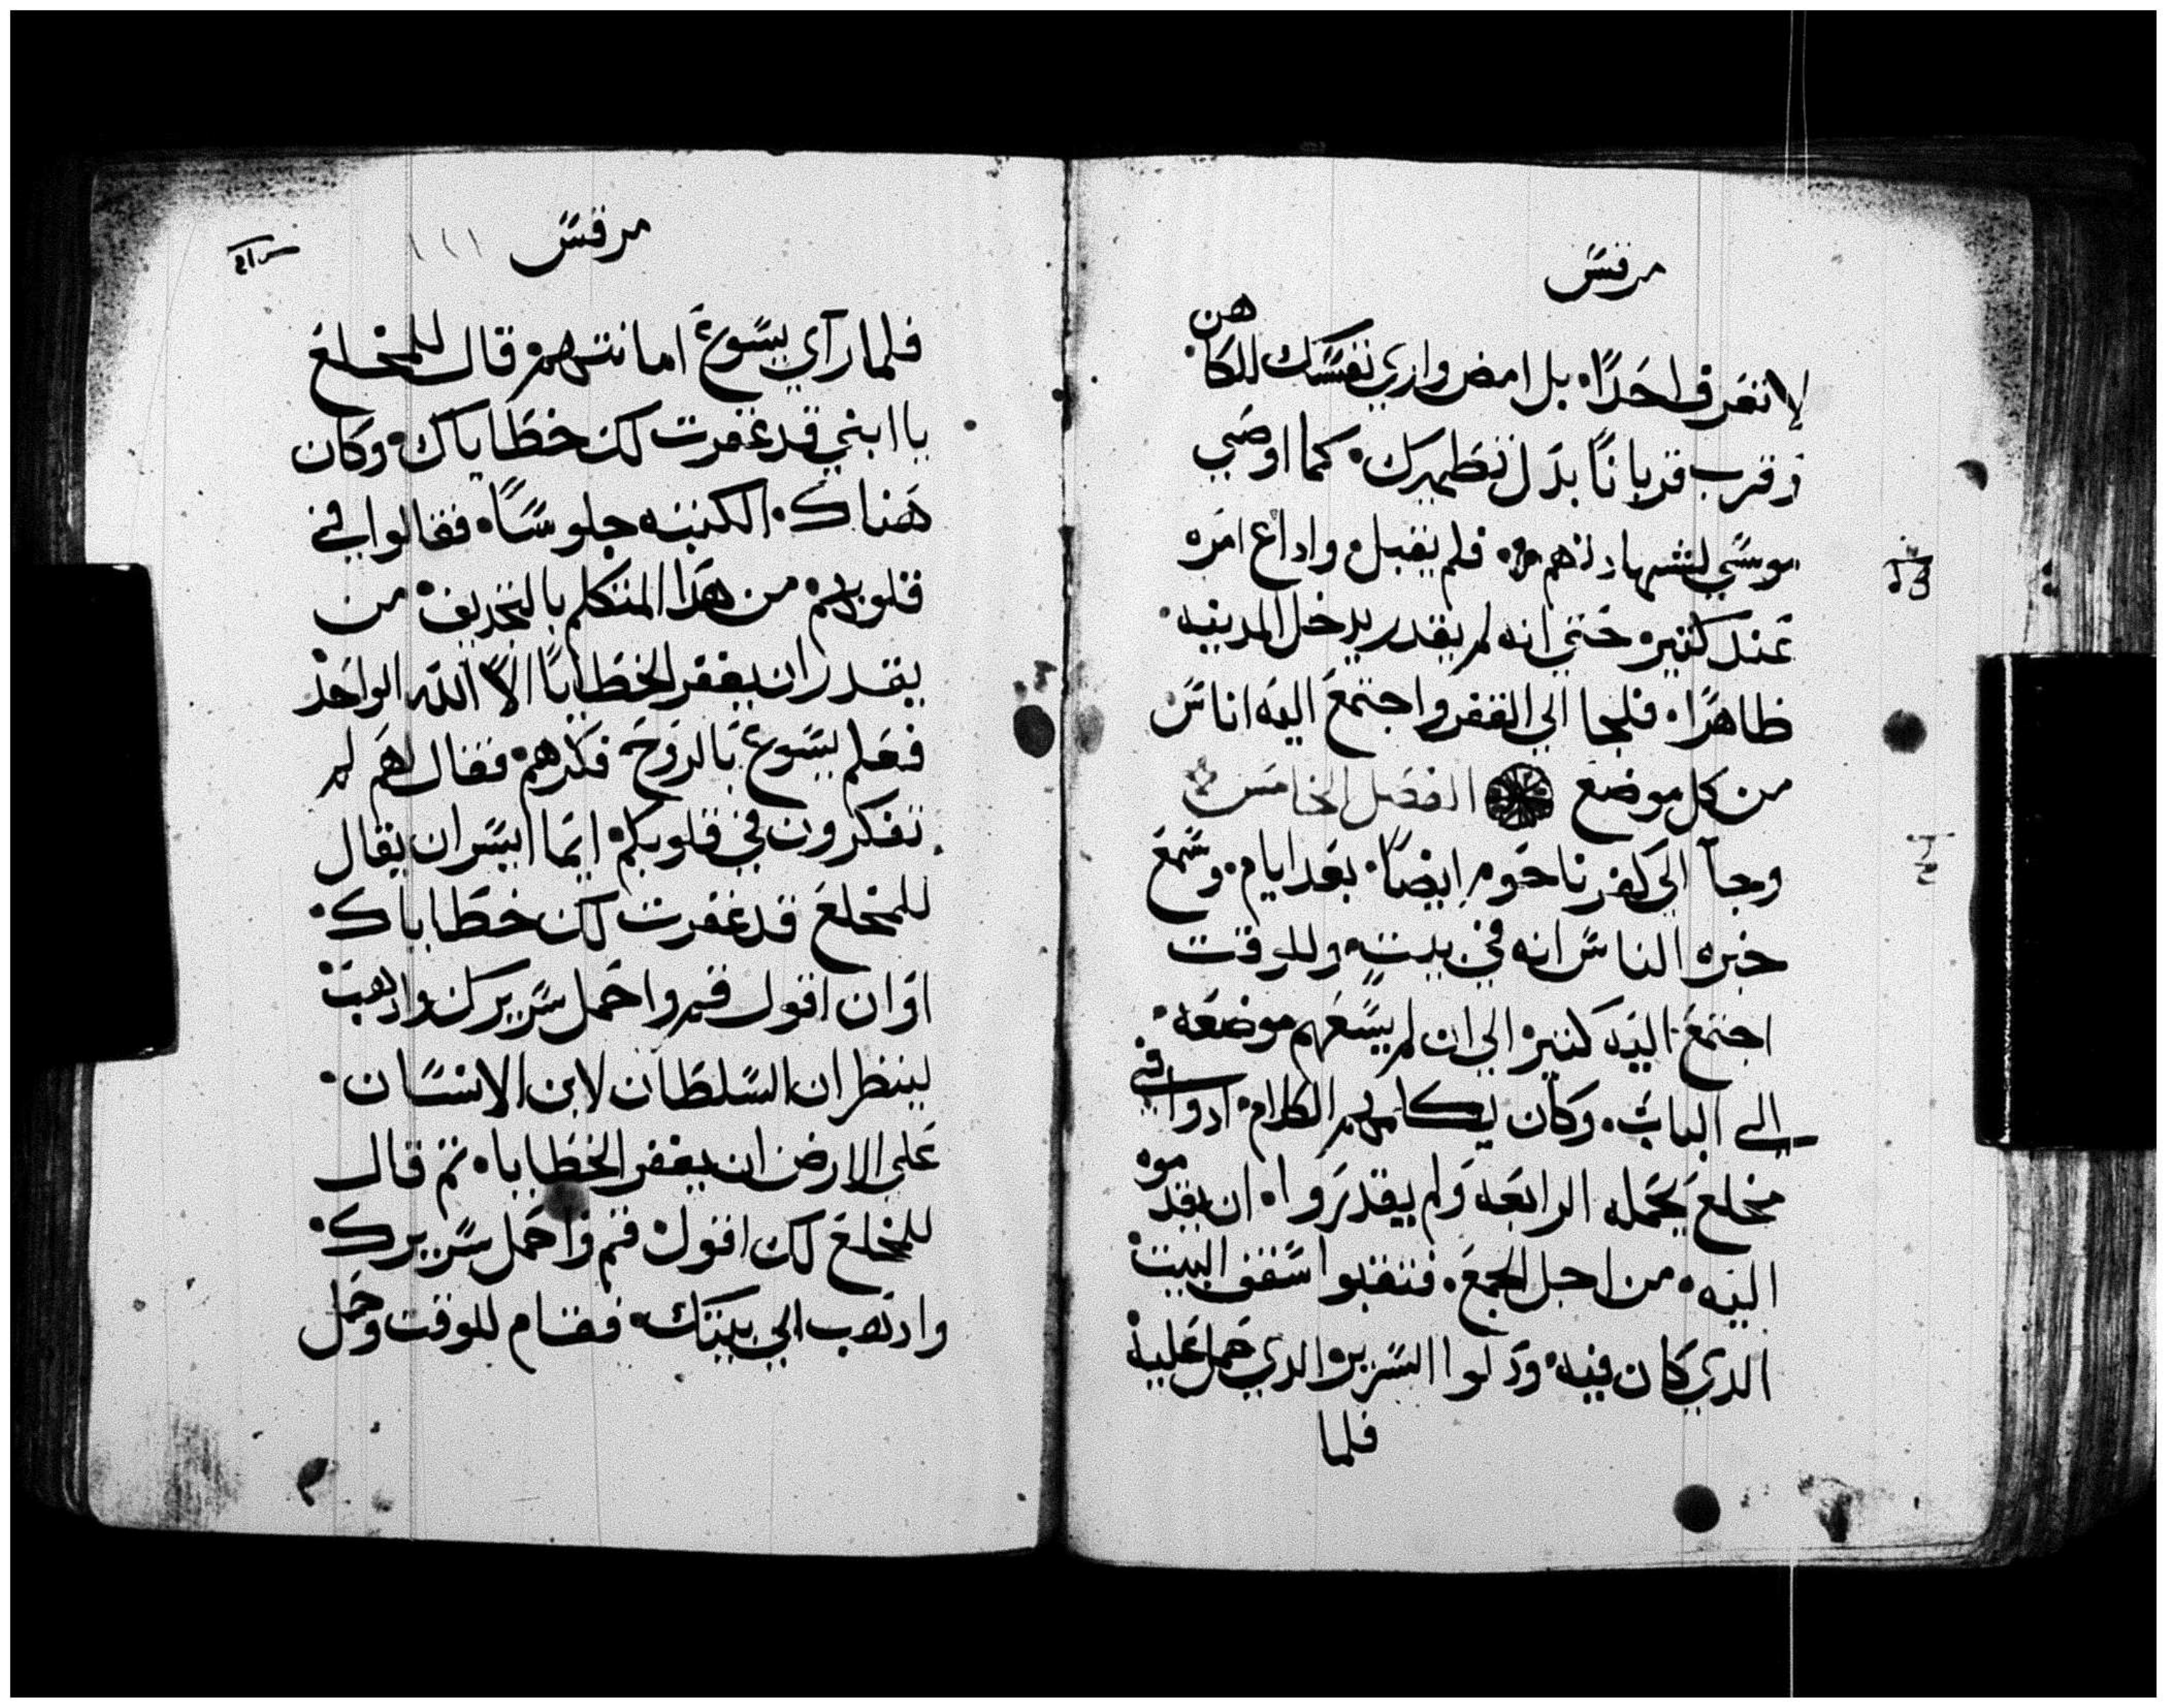 مرقس
لا تعرف احدًا۰ بل امض واري نفسك للكاهن
وقرب قربانًا بدل تطهيرك۰ كما اوصي
موسي لشهادتهم۰ فلم يقبل۰ واداع امره
عند كثيره حتي انه لم يقدر يدخل المدينه۰
ظاهرًا۰ فلجا الي القفر واجتمع اليه اناس
من كل موضع الفصل الخامس
وجآ الي كفرناحوم ايضًا۰ بعد ايام۰ وسمع
خبره الناس انه في بيت۰ وللوقت
اجتمع اليه كثيره الي ان لم يسعهم موضعه۰
الي الباب۰ وكان يكلمهم الكلام۰ ادوا في
مخلع يحمله اربعه ولم يقدروا۰ ان يقدموه
اليه۰ من اجل الجمع۰ فنقبوا سقف البيت
الدي كان فيه۰ ودلوا السرير الدي حمل عليه
فلما
مرقس
فلما رآي يسوع امانتهم قال للمخلع
يا ابني قد غفرت لك خطاياك۰ وكان
هناك۰ الكتبه جلوسًا۰ فقالوا في
قلوبهم۰ من هدا المتكلم بالتجديف۰ من
يقدر ان يغفر الخطايا الّا الله الواحد
فعلم يسوع بالروح فكرهم۰ فقال لهم لم
تفكرون في قلوبكم۰ ايما ايسر ان يقال
للمخلع قد غفرت لك خطاياك۰
او ان اقول قم واحمل سريرك وادهب
لينظر ان السلطان لابن الانسان۰
علي الارض ان يغفر الخطايا۰ ثم قال
للمخلع لك اقول قم واحمل سريرك۰
وادهب الي بيتك۰ فقام للوقت وحمل